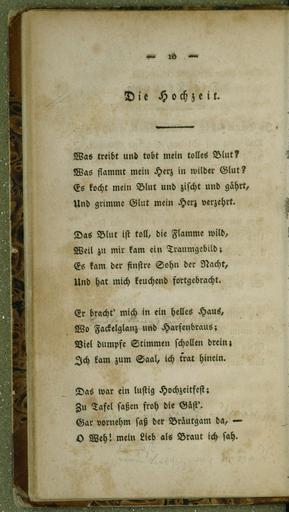 — 10 —
Die Hochzeit.
Was treibt und tobt mein tolles Blut?
Was flammt mein Herz in wilder Glut?
Es kocht mein Blut und zischt und gährt,
Und grimme Glut mein Herz verzehrt.
Das Blut ist toll, die Flamme wild,
Weil zu mir kam ein Traumgebild;
Es kam der finstre Sohn der Nacht,
Und hat mich keuchend fortgebracht.
Er bracht' mich in ein helles Haus,
Wo Fackelglanz und Harfenbraus;
Viel dumpfe Stimmen schollen drein;
Ich kam zum Saal, ich trat hinein.
Das war ein lustig Hochzeitfest;
Zu Tafel saßen froh die Gäst'.
Gar vornehm saß der Bräutgam da, —
O Weh! mein Lieb als Braut ich sah.